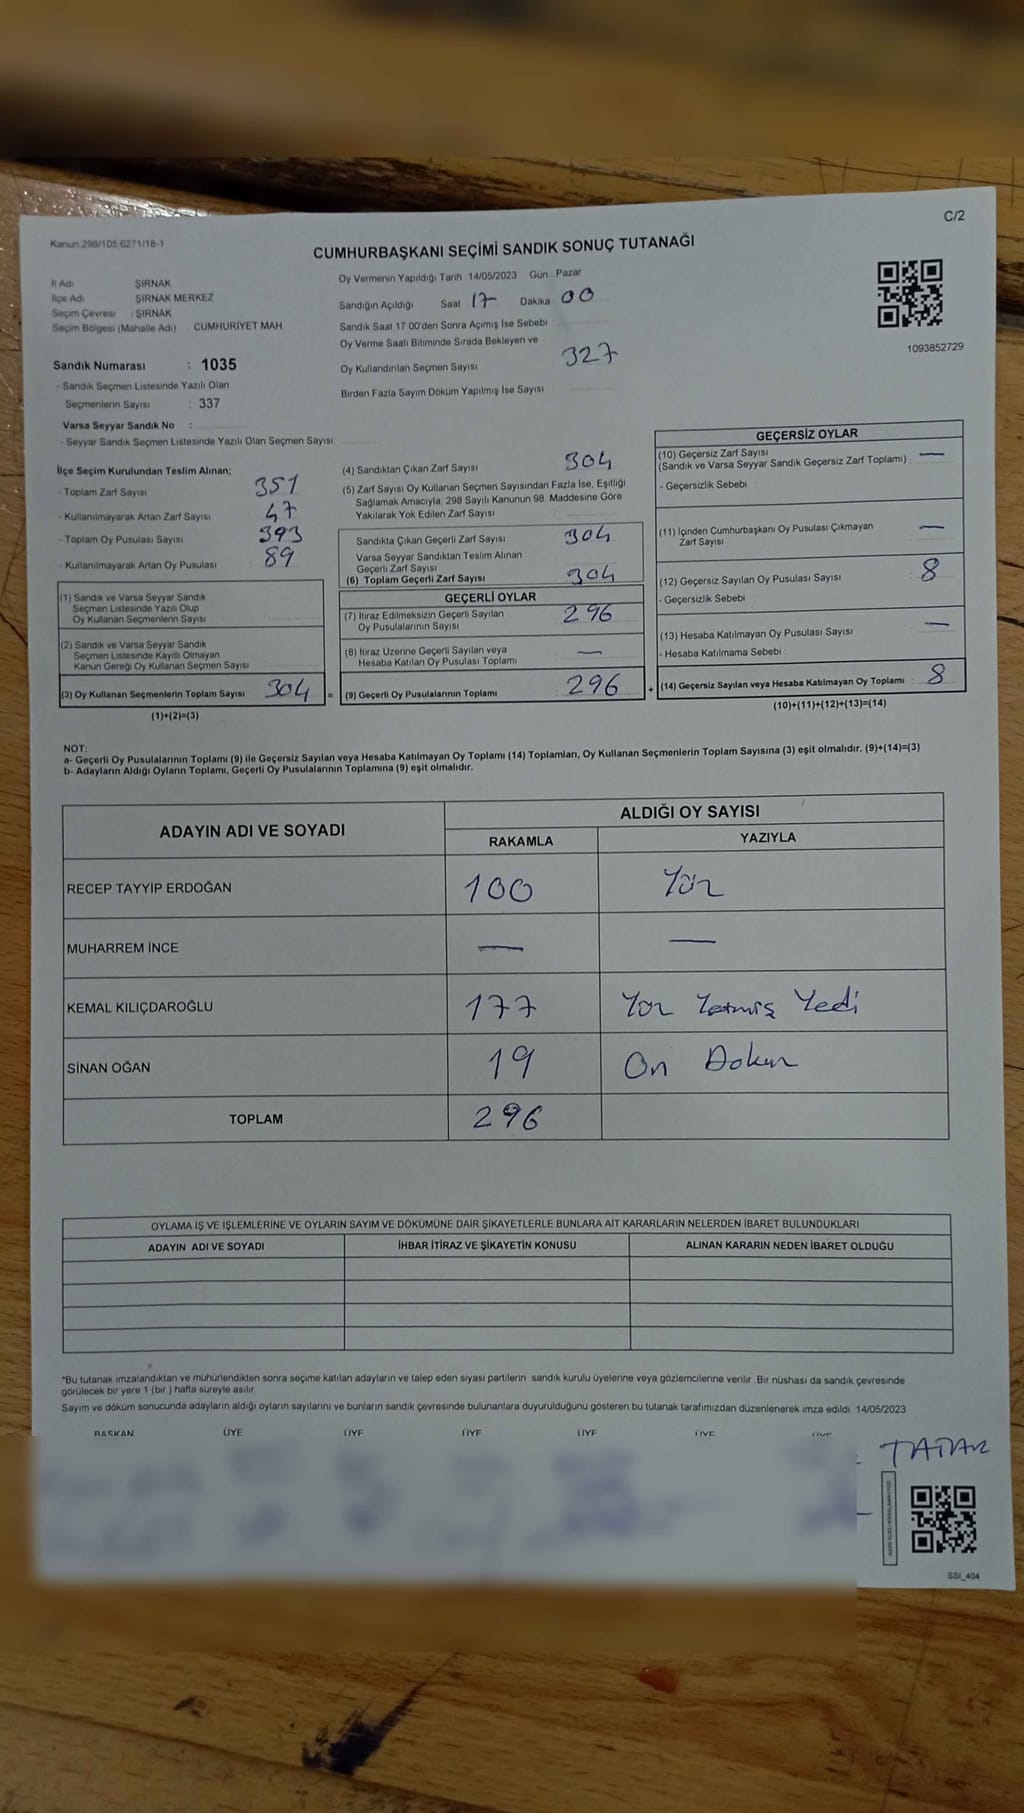 C/2
Kanun:298/105,6271/18-1
CUMHURBAŞKANI SEÇİMİ SANDIK SONUÇ TUTANAĞI
İl Adı ŞIRNAK
İlçe Adı ŞIRNAK MERKEZ
Seçim Çevresi : ŞIRNAK
Seçim Bölgesi (Mahalle Adı) CUMHURİYET MAH.
Oy Vermenin Yapıldığı Tarih 14/05/2023 Gün Pazar
Sandığın Açıldığı Saat 17 Dakika 00
Sandık Saat 17.00'den Sonra Açımış İse Sebebi
Oy Verme Saati Bitiminde Sırada Bekleyen ve
Oy Kullandırılan Seçmen Sayısı 327
Birden Fazla Sayım Döküm Yapılmış İse Sayısı
1093852729
Sandık Numarası : 1035
- Sandık Seçmen Listesinde Yazılı Olan
Seçmenlerin Sayısı : 337
Varsa Seyyar Sandık No :
- Seyyar Sandık Seçmen Listesinde Yazılı Olan Seçmen Sayısı
İlçe Seçim Kurulundan Teslim Alınan;
- Toplam Zarf Sayısı 351
- Kullanılmayarak Artan Zarf Sayısı 47
- Toplam Oy Pusulası Sayısı 393
- Kullanılmayarak Artan Oy Pusulası 89
(1) Sandık ve Varsa Seyyar Sandık
Seçmen Listesinde Yazılı Olup
Oy Kullanan Seçmenlerin Sayısı
(2) Sandık ve Varsa Seyyar Sandık
Seçmen Listesinde Kayıtlı Olmayan
Kanun Gereği Oy Kullanan Seçmen Sayısı
(3) Oy Kullanan Seçmenlerin Toplam Sayısı 304 =
(1)+(2)=(3)
(4) Sandıktan Çıkan Zarf Sayısı 304
(5) Zarf Sayısı Oy Kullanan Seçmen Sayısından Fazla İse, Eşitliği
Sağlamak Amacıyla, 298 Sayılı Kanunun 98. Maddesine Göre
Yakılarak Yok Edilen Zarf Sayısı
Sandıkta Çıkan Geçerli Zarf Sayısı 304
Varsa Seyyar Sandıktan Teslim Alınan
Geçerli Zarf Sayısı
(6) Toplam Geçerli Zarf Sayısı 304
GEÇERLİ OYLAR
(7) İtiraz Edilmeksizin Geçerli Sayılan
Oy Pusulalarının Sayısı 296
(8) İtiraz Üzerine Geçerli Sayılan veya
Hesaba Katılan Oy Pusulası Toplamı —
(9) Geçerli Oy Pusulalarının Toplamı : 296 +
GEÇERSİZ OYLAR
(10) Geçersiz Zarf Sayısı
(Sandık ve Varsa Seyyar Sandık Geçersiz Zarf Toplamı) —
- Geçersizlik Sebebi :
(11) İçinden Cumhurbaşkanı Oy Pusulası Çıkmayan
Zarf Sayısı —
(12) Geçersiz Sayılan Oy Pusulası Sayısı 8
- Geçersizlik Sebebi :
(13) Hesaba Katılmayan Oy Pusulası Sayısı —
- Hesaba Katılmama Sebebi :
(14) Geçersiz Sayılan veya Hesaba Katılmayan Oy Toplamı : 8
(10)+(11)+(12)+(13)=(14)
NOT:
a- Geçerli Oy Pusulalarının Toplamı (9) ile Geçersiz Sayılan veya Hesaba Katılmayan Oy Toplamı (14) Toplamları, Oy Kullanan Seçmenlerin Toplam Sayısına (3) eşit olmalıdır. (9)+(14)=(3)
b- Adayların Aldığı Oyların Toplamı, Geçerli Oy Pusulalarının Toplamına (9) eşit olmalıdır.
ADAYIN ADI VE SOYADI ALDIĞI OY SAYISI
RAKAMLA YAZIYLA
RECEP TAYYİP ERDOĞAN 100 Yüz
MUHARREM İNCE — —
KEMAL KILIÇDAROĞLU 177 Yüz Yetmiş Yedi
SİNAN OĞAN 19 On Dokuz
TOPLAM 296
OYLAMA İŞ VE İŞLEMLERİNE VE OYLARIN SAYIM VE DÖKÜMÜNE DAİR ŞİKAYETLERLE BUNLARA AİT KARARLARIN NELERDEN İBARET BULUNDUKLARI
ADAYIN ADI VE SOYADI İHBAR İTİRAZ VE ŞİKAYETİN KONUSU ALINAN KARARIN NEDEN İBARET OLDUĞU
*Bu tutanak imzalandıktan ve mühürlendikten sonra seçime katılan adayların ve talep eden siyasi partilerin sandık kurulu üyelerine veya gözlemcilerine verilir. Bir nüshası da sandık çevresinde
görülecek bir yere 1 (bir ) hafta süreyle asılır.
Sayım ve döküm sonucunda adayların aldığı oyların sayılarını ve bunların sandık çevresinde bulunanlara duyurulduğunu gösteren bu tutanak tarafımızdan düzenlenerek imza edildi. 14/05/2023
BAŞKAN ÜYE ÜYE ÜYE ÜYE ÜYE
TATAR
SSI_404